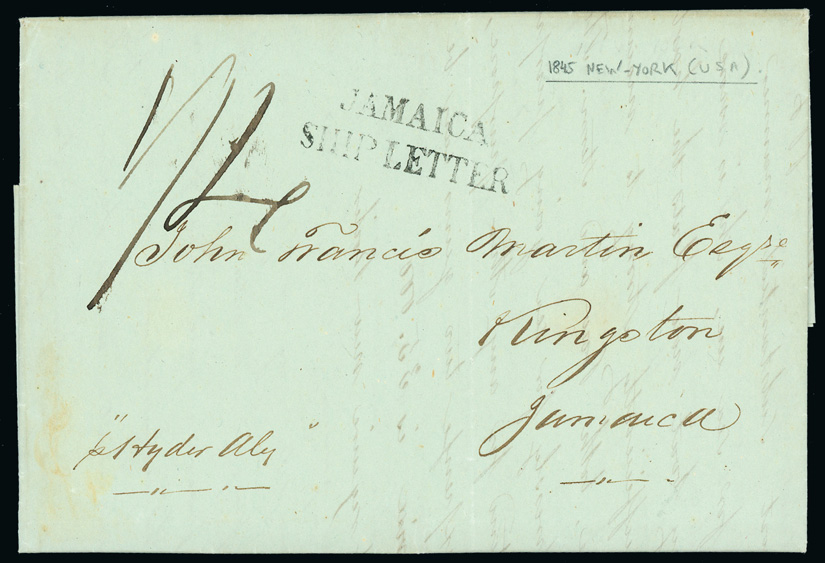 1845 NEW-YORK (USA)
JAMAICA
SHIP LETTER
1/4
John Francis Martin Esqre
Kingston
Jamaica
p "Hyder Aly"